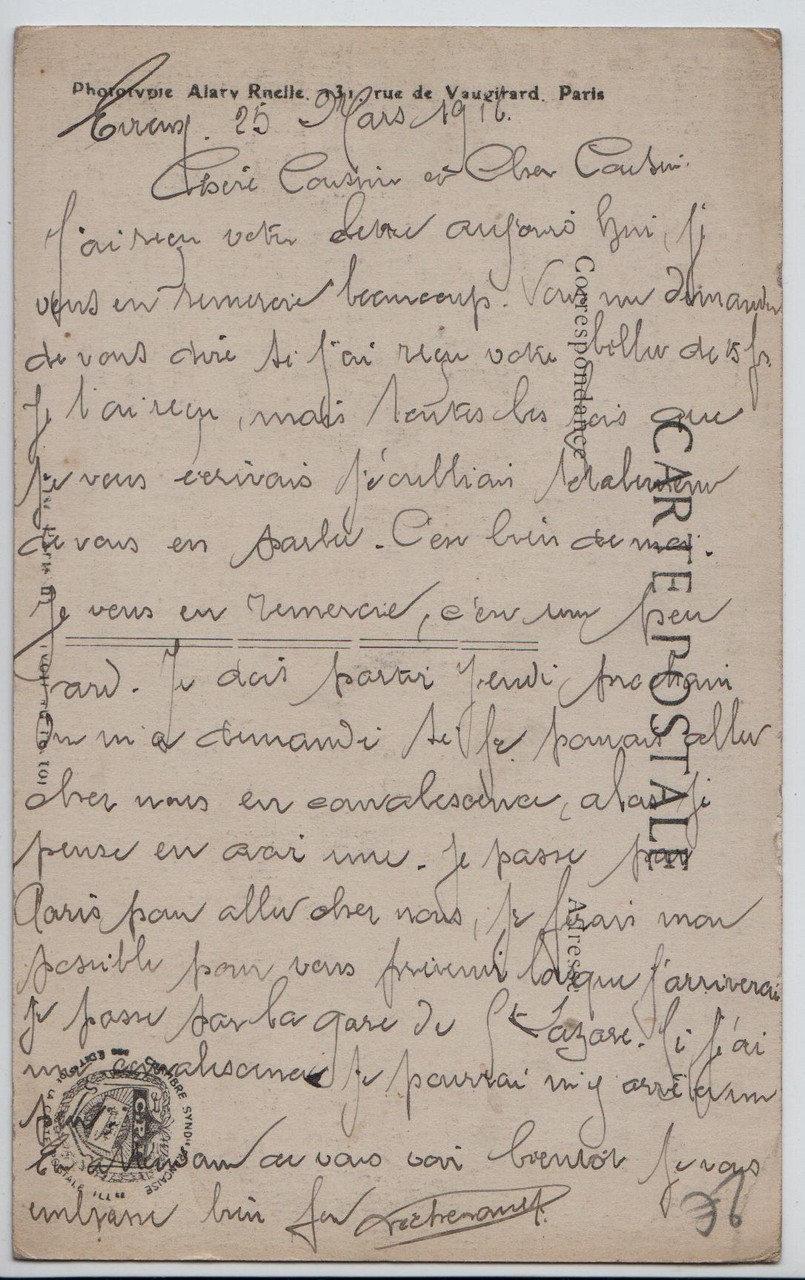 Phototypie Alary Ruelle. 131, rue de Vaugirard. Paris
Evreux. 25 Mars 1916.
Chère Cousine et Cher Cousin.
J'ai reçu votre lettre aujourd hui, je
vous en remercie beaucoup. Vous me demander
de vous dire si j'ai reçu votre billet de 5 frs
Je l'ai reçu, mais toutes les fois que
je vous ecrivais j'éoublliais totalement
de vous en parler. C'est bien de moi.
Je vous en remercie, c'est un peu
tard. Je dois partir Jeudi prochain
on m'a demandé si je pouvais aller
chez nous en convalescence, alors je
pense en avoir une. Je passe par
Paris pour aller chez nous, je ferais mon
possible pour vous prévenir lorsque j'arriverai
je passe par la gare de St Lazare. Si j'ai
une convalescence je pourrai m'y arrêter un
peu
En attendant de vous voir bientôt je vous
embrasse bien fort
Correspondance
CARTE POSTALE
Adresse
CHAMBRE SYNDICALE FRANÇAISE